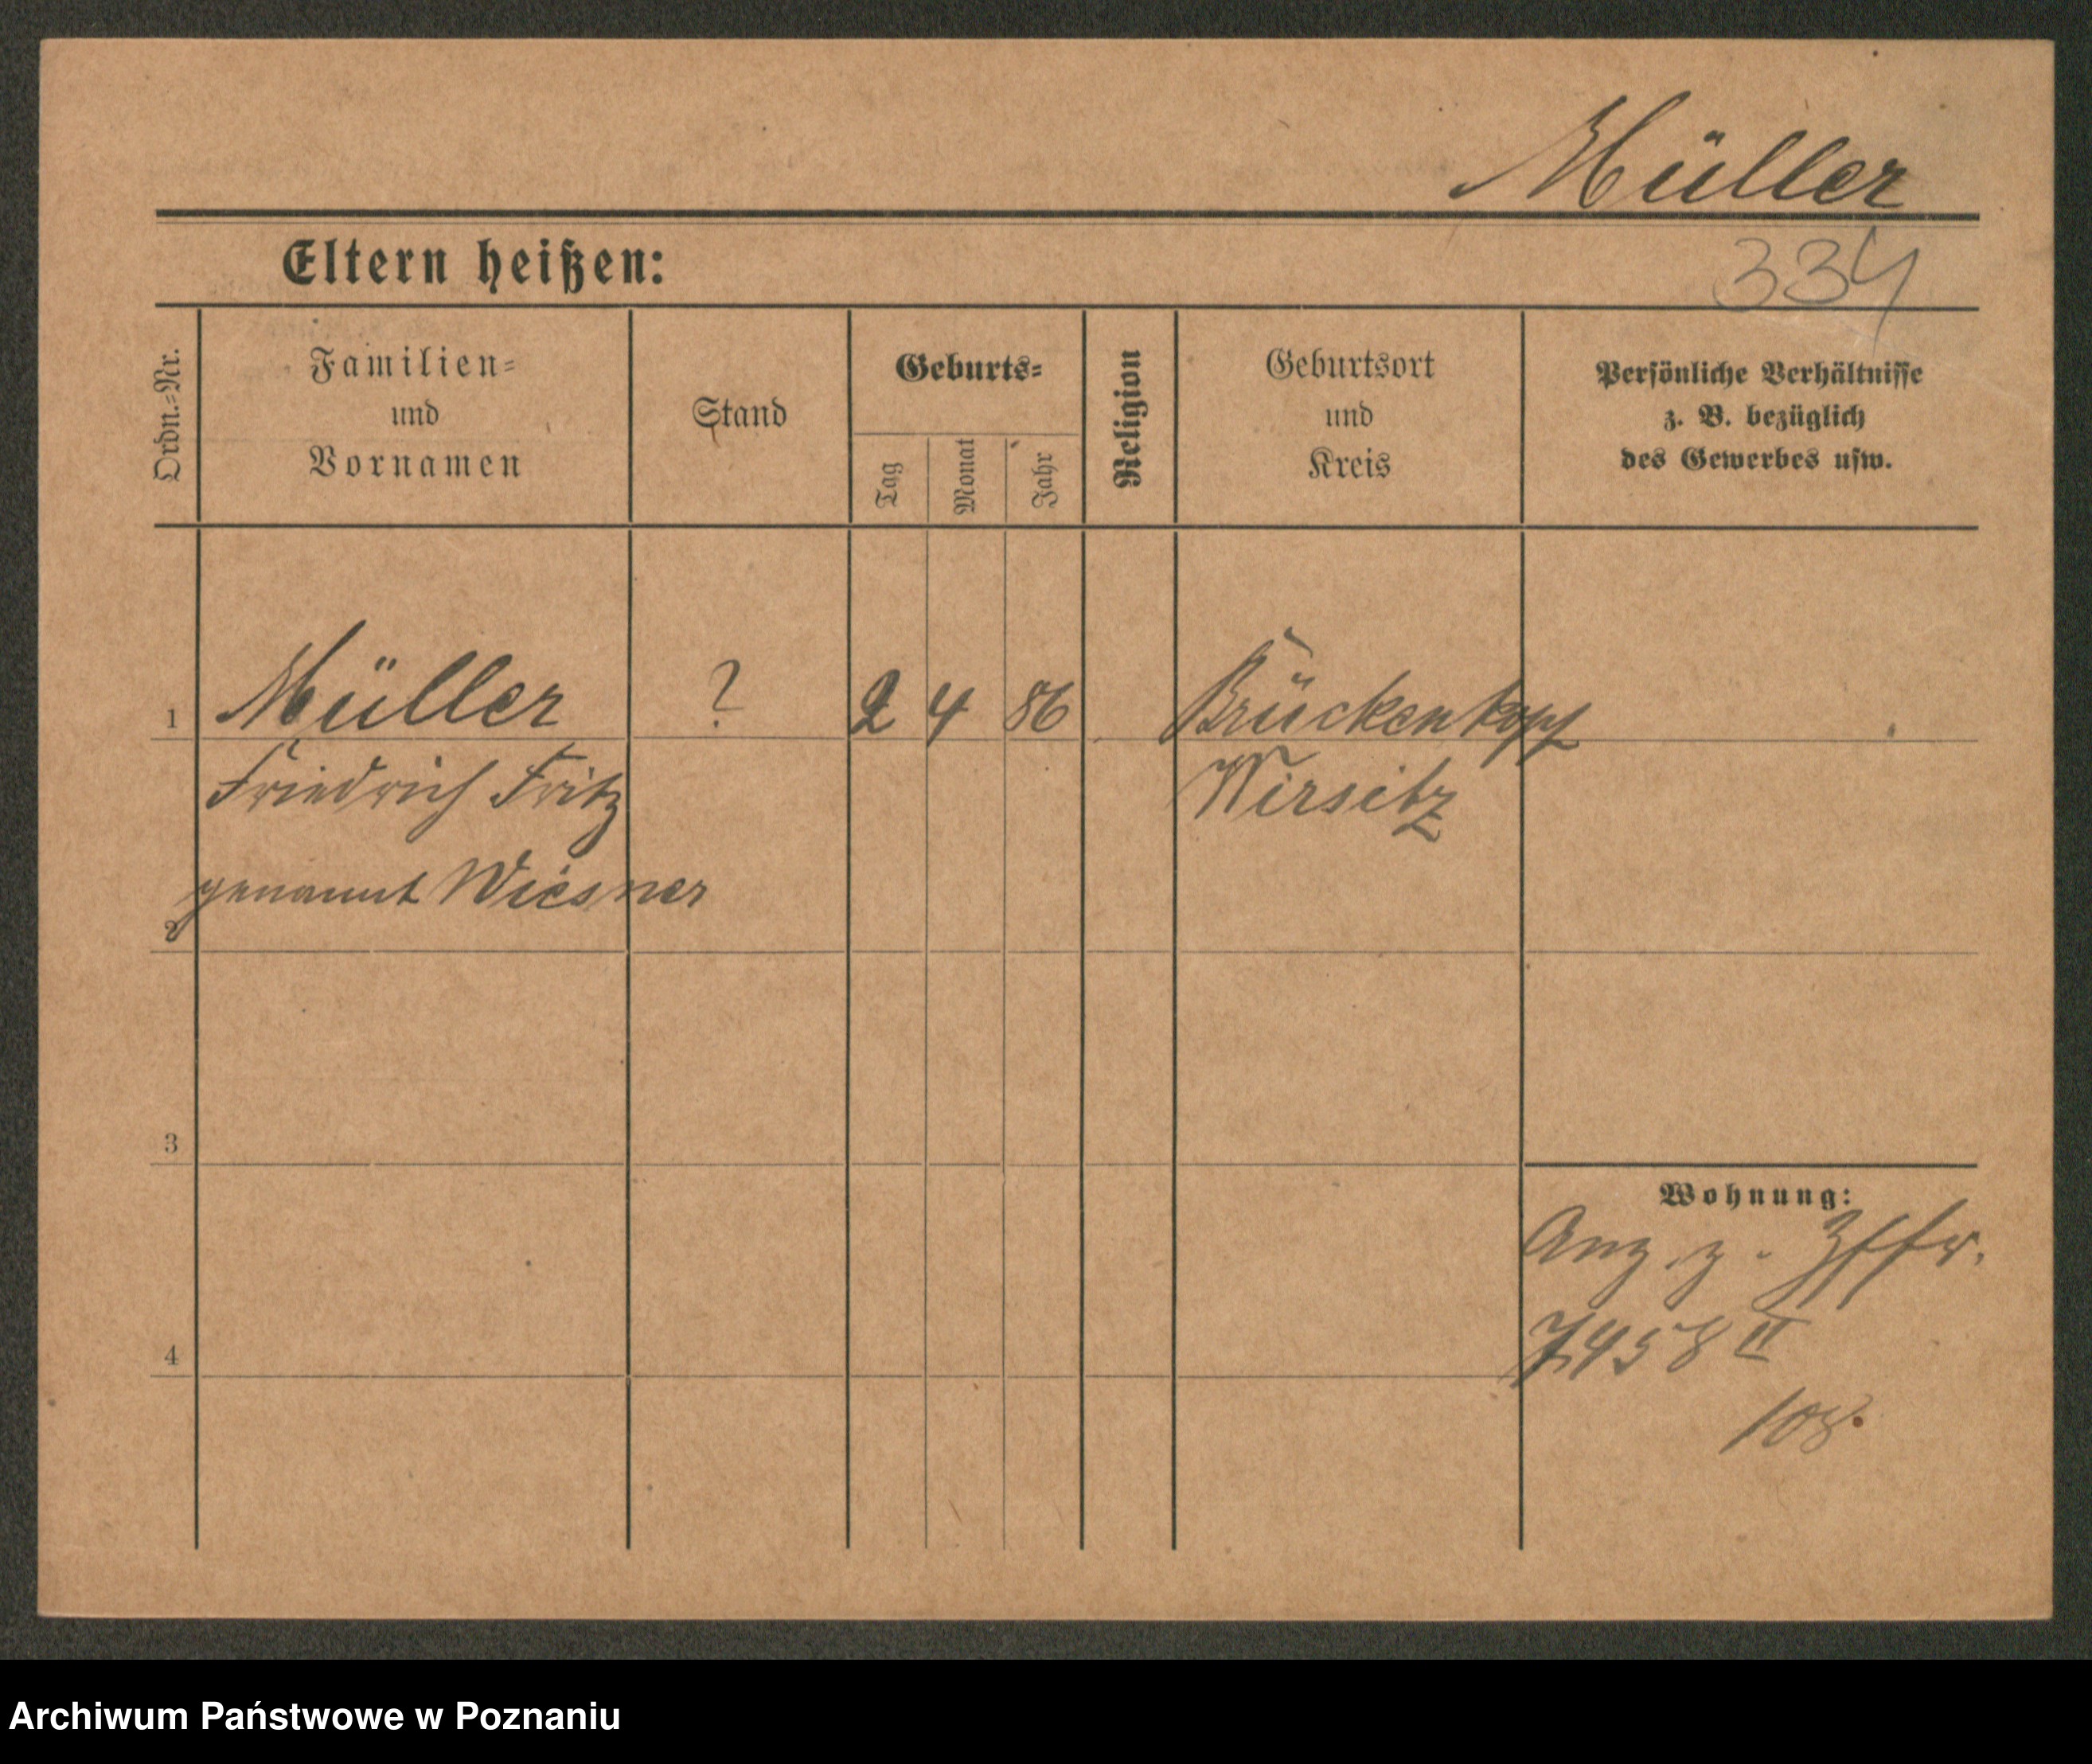 Müller
Eltern heißen:
334
Ordn.-Nr.
Familien-
und
Vornamen
Stand
Geburts-
Tag
Monat
Jahr
Religion
Geburtsort
und
Kreis
Persönliche Verhältnisse
z. B. bezüglich
des Gewerbes usw.
1 Müller ? 2 4 86 Brückenkopf
Friedrich Fritz Wirsitz
genannt Wiesner
2
3
Wohnung:
Anz. z.
4
7458 II
108.
Archiwum Państwowe w Poznaniu